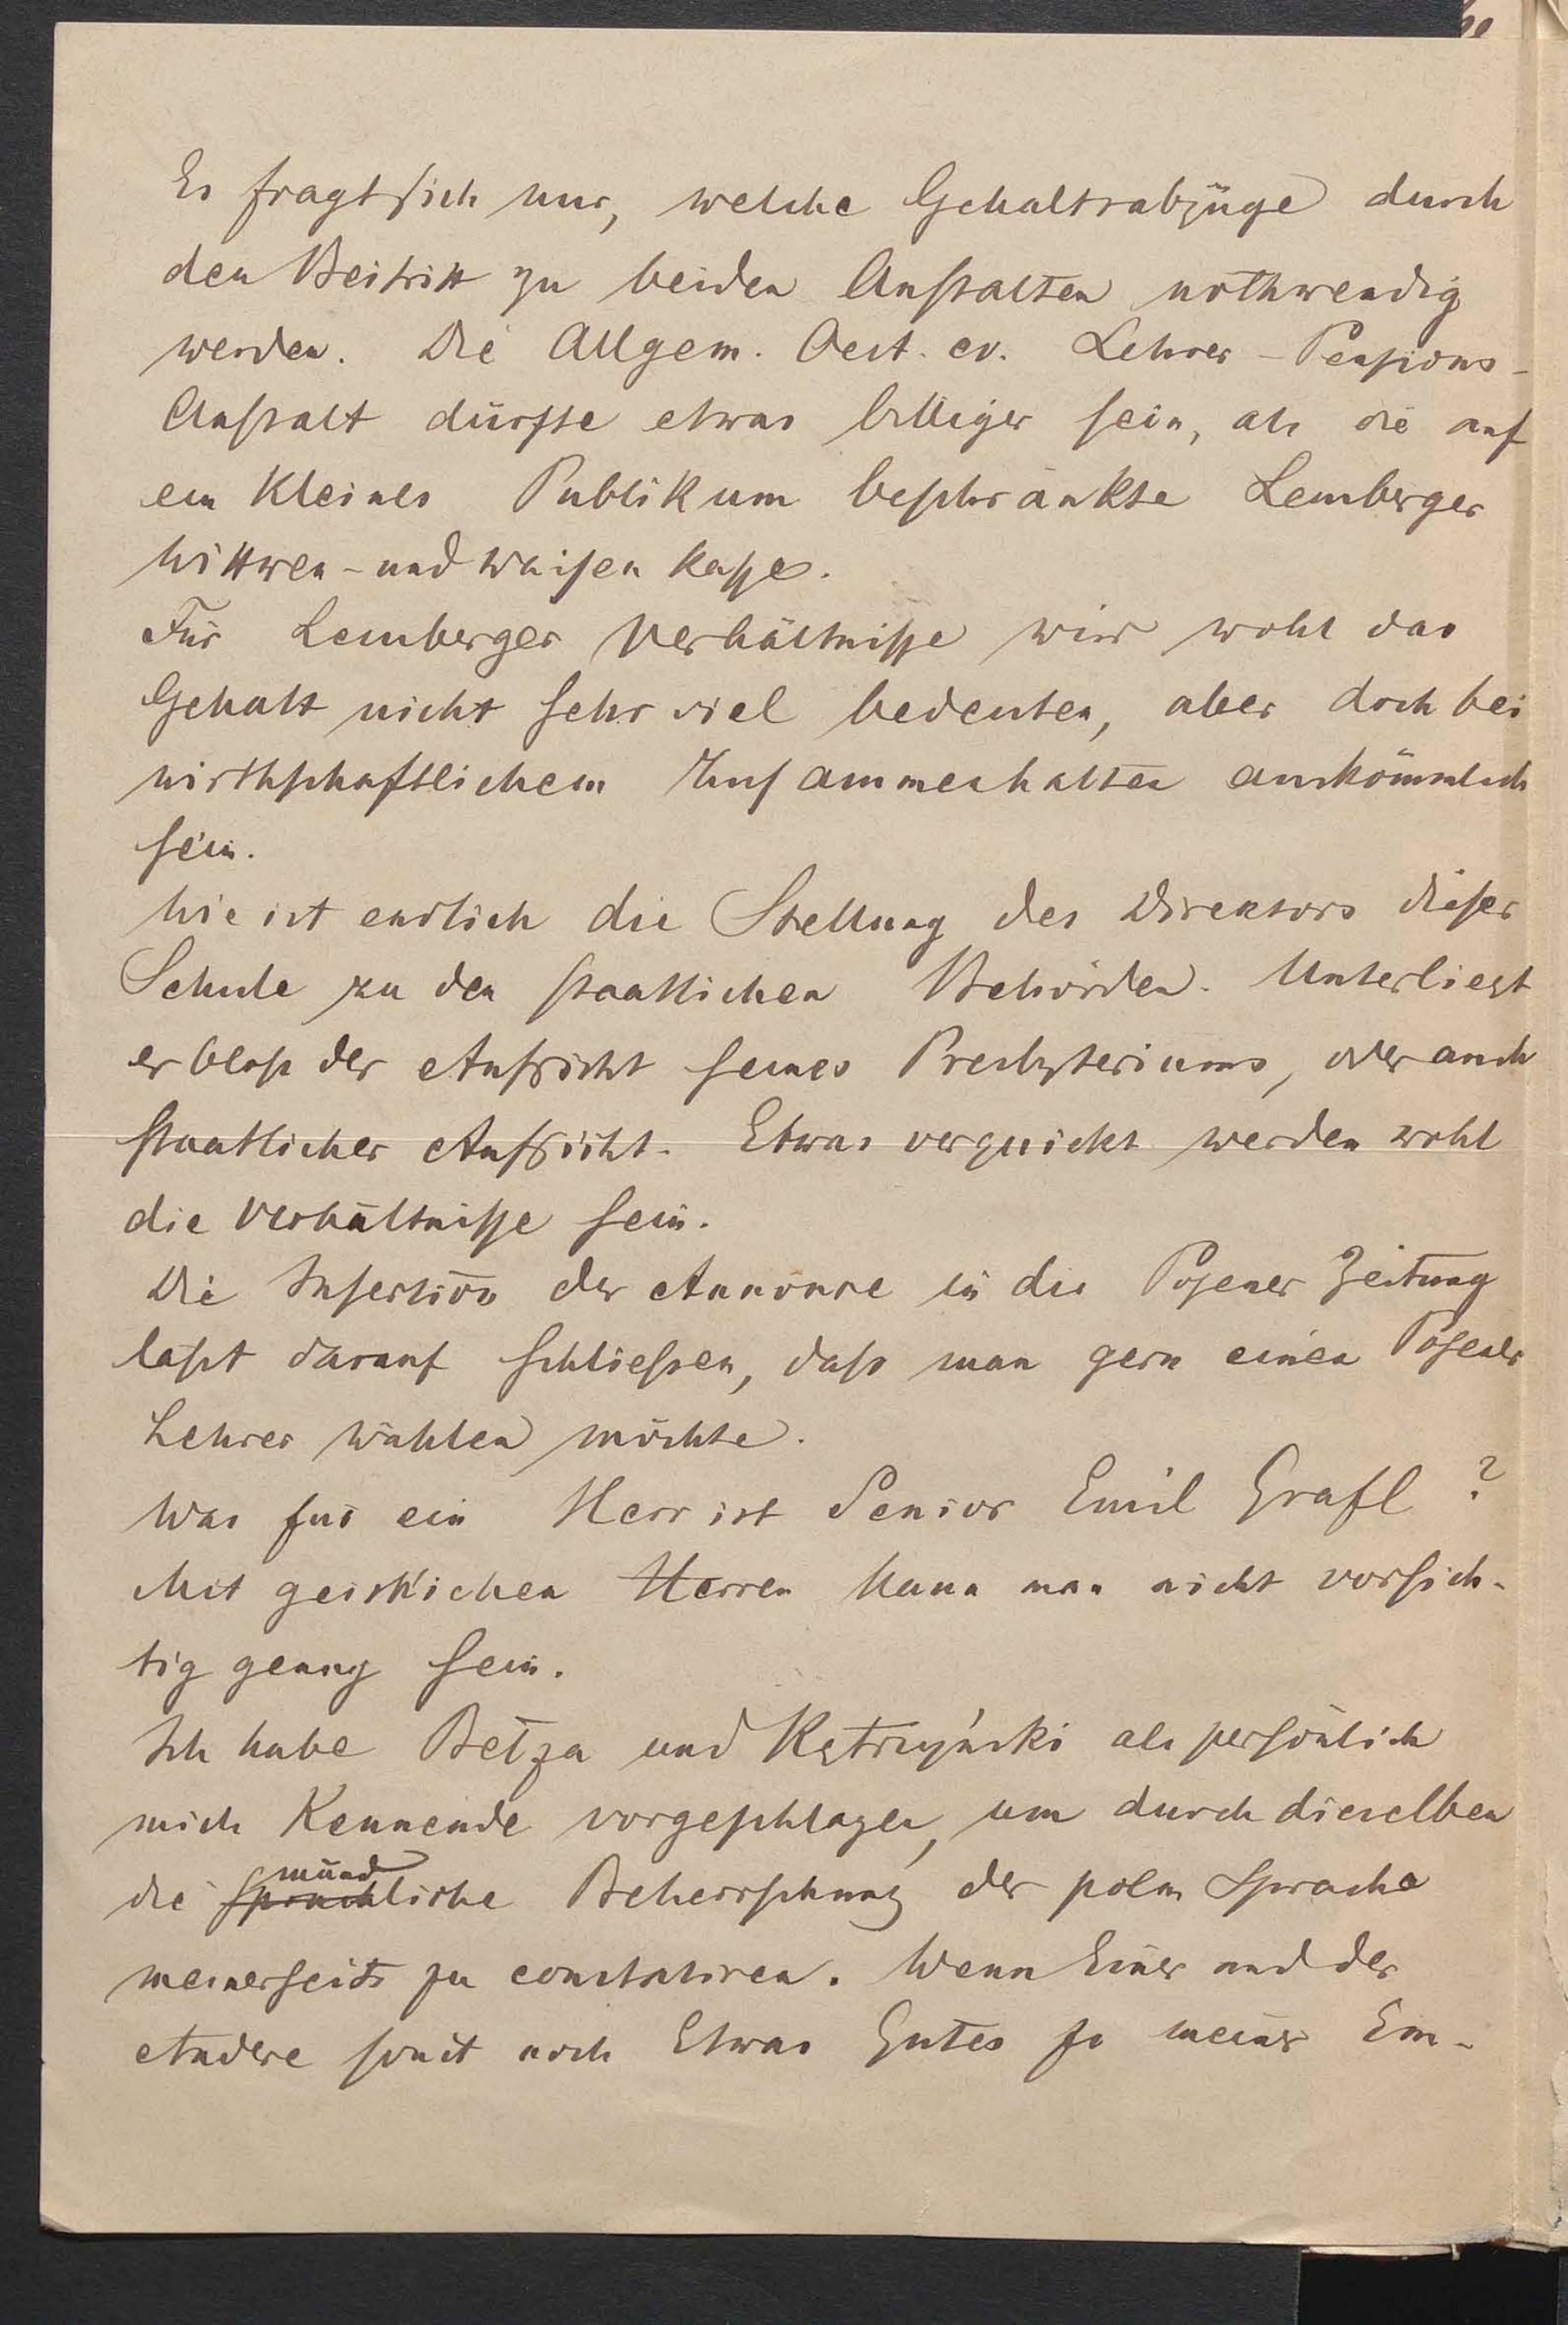 Es fragt sich nur, welche Gehaltsabzüge durch
den Beitritt zu beiden Anstalten nothwendig
werden. Die Allgem. Oest. ev. Lehrer-Pensions-
Anstalt dürfte etwas billiger sein, als die auf
ein kleines Publikum beschränkte Lemberger
Wittwen- und Waisen Kasse.
Für Lemberger Verhältnisse wird wohl das
Gehalt nicht sehr viel bedeuten, aber doch bei
wirthschaftlichem Zusammenhalten auskömmlich
sein.
Wie ist endlich die Stellung des Direktors dieser
Schule zu den staatlichen Behörden. Unterliegt
er blos der Aufsicht seines Presbyteriums, oder auch
staatlicher Aufsicht. Etwas verquickt werden wohl
die Verhältnisse sein.
Die Insertion der Annonce in die Posener Zeitung
läßt darauf schließen, daß man gern einen Posener
Lehrer wählen möchte.
Was für ein Herr ist Senior Emil Grafl?
Mit geistlichen Herren kann man nicht vorsich-
tig genug sein.
Ich habe Betza und Kętrzyński als persönlich
mich Kennende vorgeschlagen, um durch dieselben
münd
die sprachliche Beherrschung der poln Sprache
meinerseits zu constatiren. Wenn Einer und der
Andere sonst noch Etwas Gutes zu meiner Em-